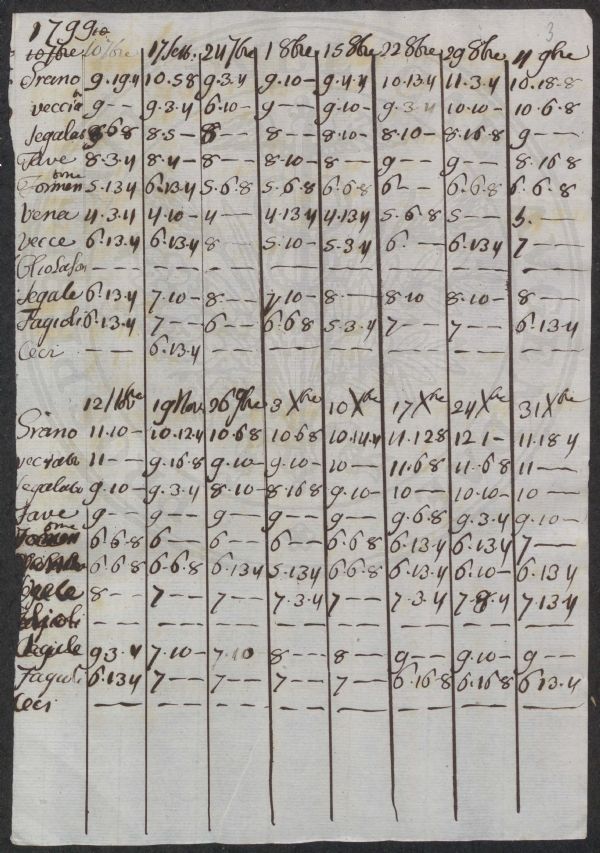 1799 3
10 7bre 17 Sett. 24 7bre 1 8bre 15 8bre 22 8bre 29 8bre 11 9bre
Grano 9.19.4 10.5.8 9.3.4 9.10- 9.4.4 10.13.4 11.3.4 10.18.8
veccia 9-- 9.3.4 6.10- 9-- 9.10- 9.3.4 10.10- 10.6.8
Segalat 8.6.8 8.5- 8-- 8-- 8.10- 8.10- 8.16.8 9--
Fave 8.3.4 8.4- 8-- 8.10- 8-- 9-- 9-- 8.16.8
Formen 5.13.4 6.13.4 5.6.8 5.6.8 6.6.8 6-- 6.6.8 6.6.8
Vena 4.3.4 4.10- 4-- 4.13.4 4.13.4 5.6.8 5-- 5.--
Vecce 6.13.4 6.13.4 8-- 5.10- 5.3.4 6.-- 6.13.4 7--
--- --- --- --- --- --- --- ---
Segale 6.13.4 7.10- 8-- 7.10- 8-- 8.10 8.10- 8--
Fagioli 6.13.4 7-- 6-- 6.6.8 5.3.4 7-- 7-- 6.13.4
Ceci --- 6.13.4
12 9bre 19 Nov 26 9bre 3 Xbre 10 Xbre 17 Xbre 24 Xbre 31 Xbre
Grano 11.10- 10.12.4 10.6.8 10.6.8 10.14.4 11.12.8 12.1- 11.18.4
vecciato 11-- 9.16.8 9.10- 9.10- 10-- 11.6.8 11.6.8 11--
Segalato 9.10- 9.3.4 8.10- 8.16.8 9.10- 10-- 10.10- 10--
Fave 9-- 9-- 9-- 9-- 9-- 9.6.8 9.3.4 9.10-
6.6.8 6-- 6-- 6-- 6.6.8 6.13.4 6.13.4 7--
6.6.8 6.6.8 6.13.4 5.13.4 6.6.8 6.13.4 6.10- 6.13.4
8-- 7-- 7-- 7.3.4 7-- 7.3.4 7.8.4 7.13.4
--- --- --- --- --- --- --- ---
Segale 9.3.4 7.10- 7.10 8-- 8-- 9-- 9.10- 9--
Fagioli 6.13.4 7-- 7-- 7-- 7-- 6.16.8 6.16.8 6.13.4
Ceci --- --- --- --- --- --- --- ---